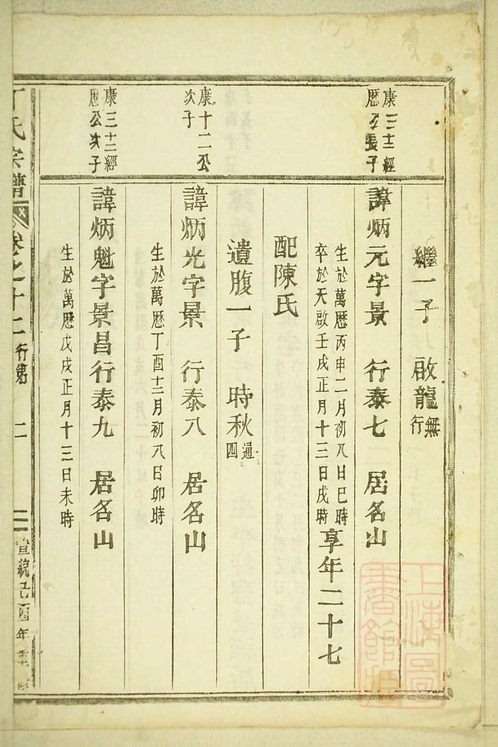 繼一子 啟龍無行
康三十二經歷公長子
諱炳元字景 行泰七 居名山
生於萬曆丙申二月初八日巳時
卒於天啟壬戌十月十三日戌時享年二十七
配陳氏
遺腹一子 時秋通四
康十二公次子
諱炳光字景 行泰八 居名山
生於萬曆丁酉十二月初八日卯時
康三十二經歷公次子
諱炳魁字景昌行泰九 居名山
生於萬曆戊戌正月十三日未時
丁氏宗譜 卷之十二 行第 二
宣統己酉年重
上海圖書館藏